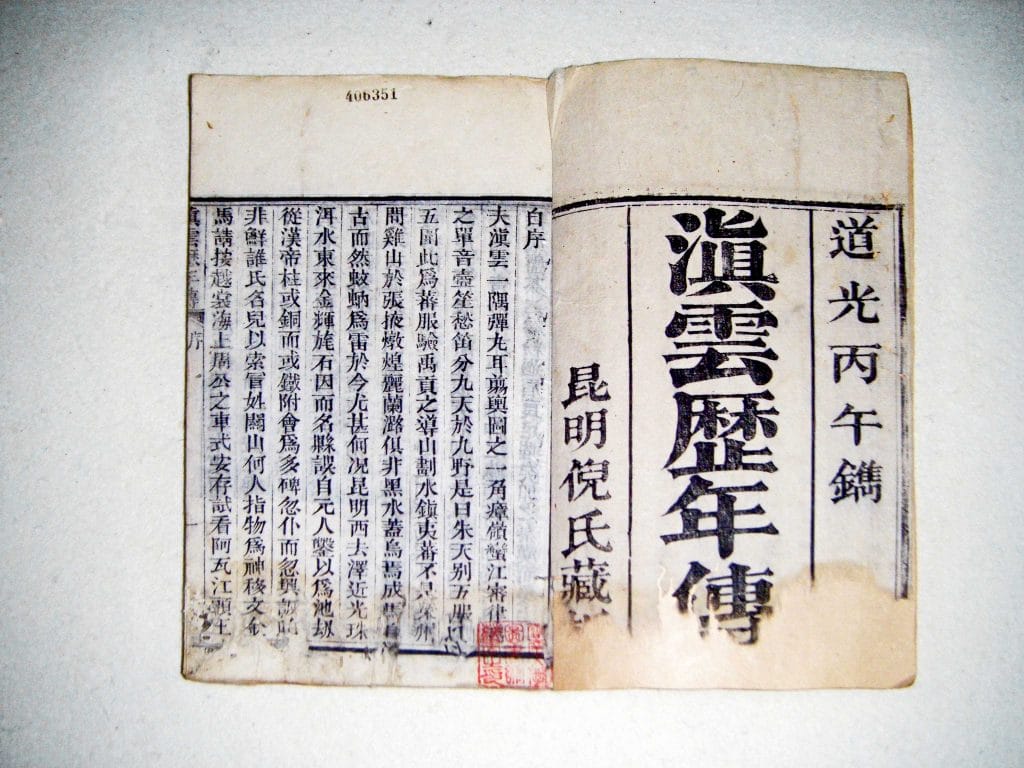 道光丙午鐫
滇雲歷年傳
昆明倪氏藏
406351
自序
夫滇雲一隅彈丸耳剪輿圖之一角瘴嶺蠻江審律
之單音壺笙愁笛分九天於九野是日朱天别五服
五圖此爲蕃服驗禹貢之導山劃水鎮夷蕃不見
問雞山於張掖燉煌麗蘭潞俱非黑水蓋烏焉成馬自
古而然蚊蚋爲雷於今尤甚何况昆明西去澤近光珠
洱水東來金輝旄石因而名縣誤自元人鑿以爲池刼
從漢帝柱或銅而或鐵附會爲多碑忽仆而忽興
非鮮誰氏名兒以索冒姓闢山何人指物爲神移文金
馬請接越裳海上周公之車式安存試看阿瓦江頭
滇雲歷年傳 序